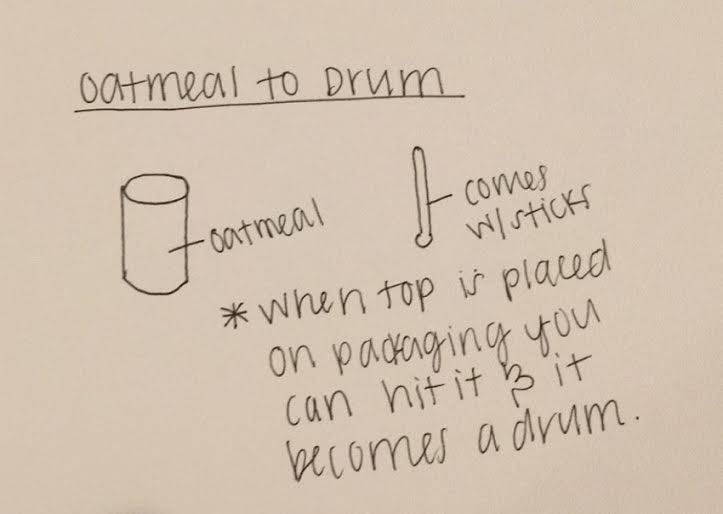 oatmeal to Drum
oatmeal
comes
w/sticks
* when top is placed
on packaging you
can hit it & it
becomes a drum.